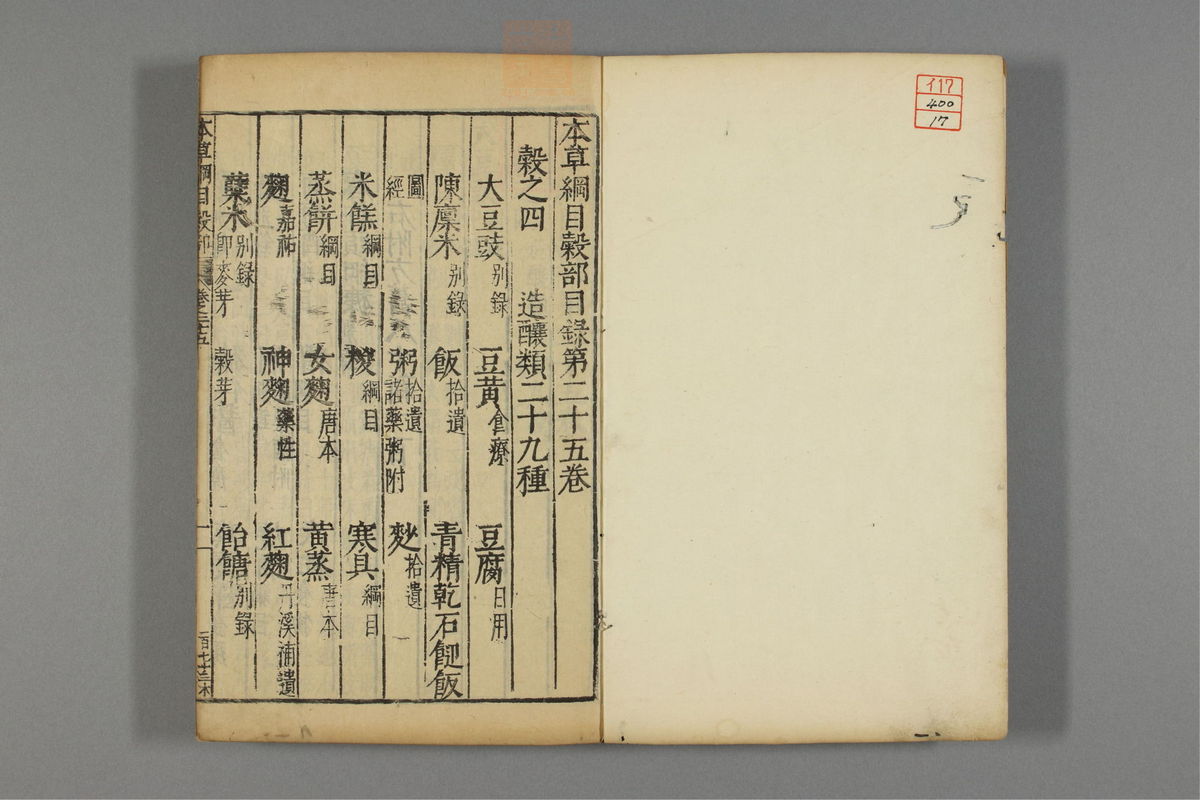 イ17
400
17
本草綱目穀部目錄第二十五卷
穀之四　造釀類二十九種
大豆豉 别錄　豆黃 食療　豆腐 日用
陳廩米 别錄　飯 拾遺　青精乾石䭀飯
圖經　粥 拾遺 諸藥粥附　麨 拾遺
米餻 綱目　糉 綱目　寒具 綱目
蒸餅 綱目　女麴 唐本　黄蒸 唐本
麴 嘉祐　神麴 藥性　紅麴 丹溪補遺
糵米 别錄 即麥芽 穀芽　飴餹 别錄
本草綱目穀部 卷之二十五